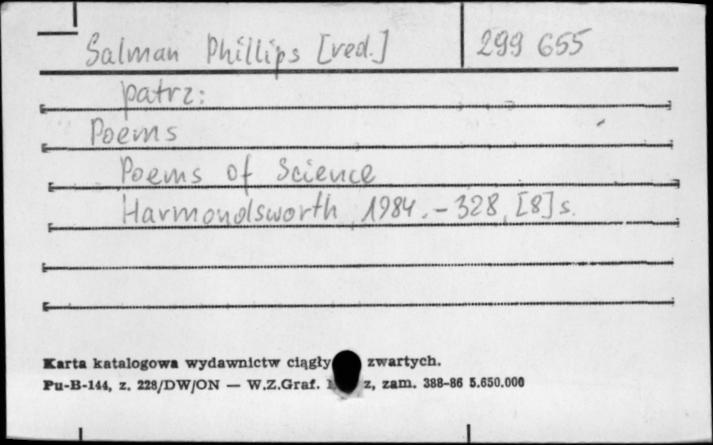 Salman Phillips [red.] 299 655
patrz:
Poems
Poems of Science
Harmondsworth 1984. – 328, [8] s.
Karta katalogowa wydawnictw ciągły zwartych.
Pu-B-144, z. 228/DW/ON — W.Z.Graf. z, zam. 388-86 5.650.000